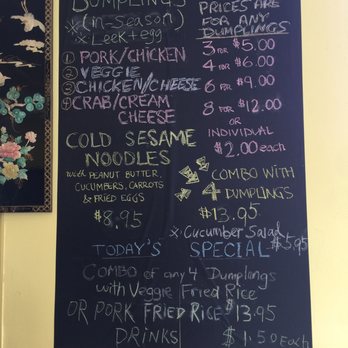 DUMPLINGS
(in-Season)
x Leek+egg
① PORK/CHICKEN
② VEGGIE
③ CHICKEN/CHEESE
④ CRAB/CREAM
CHEESE
PRICES ARE
FOR ANY
DUMPLINGS
3 FOR $5.00
4 FOR $6.00
6 FOR $9.00
8 FOR $12.00
OR
INDIVIDUAL
$2.00 each
COLD SESAME
NOODLES
with PEANUT BUTTER,
CUCUMBERS, CARROTS
& FRIED EGGS
$8.95
COMBO WITH
4 DUMPLINGS
$13.95
x Cucumber Salad
$5.95
TODAY'S SPECIAL
COMBO of any 4 Dumplings
with Veggie Fried Rice
OR PORK FRIED RICE $13.95
DRINKS $1.50 Each